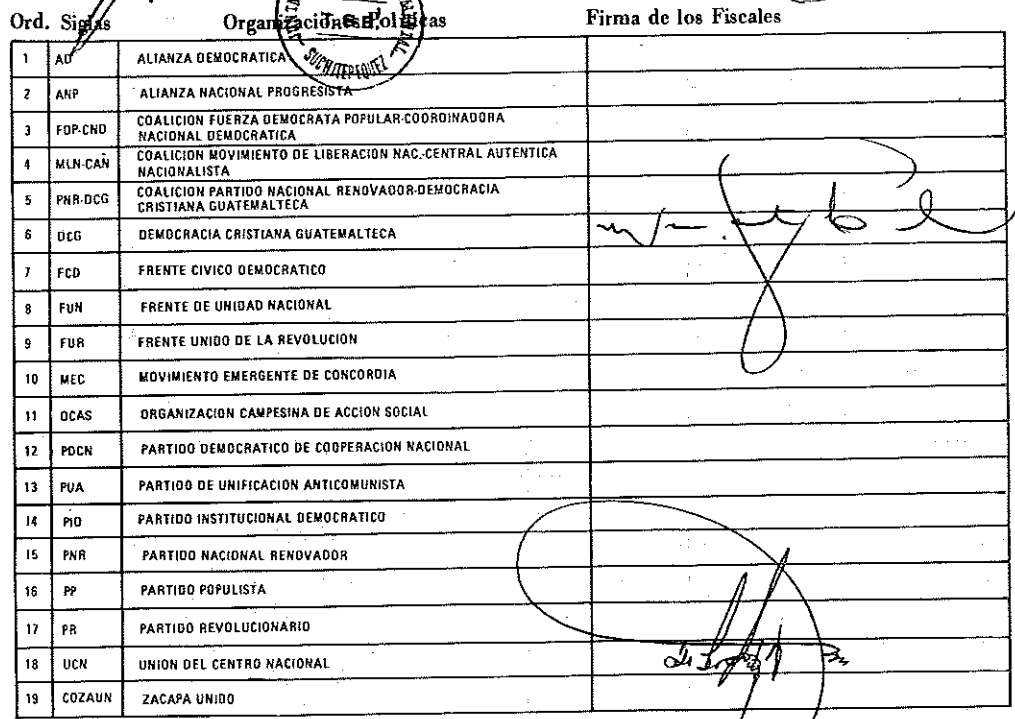 Ord. Siglas Organizaciones Políticas Firma de los Fiscales
SUCHITEPEQUEZ
1 AD ALIANZA DEMOCRATICA
2 ANP ALIANZA NACIONAL PROGRESISTA
3 FDP-CND COALICION FUERZA DEMOCRATA POPULAR-COORDINADORA
NACIONAL DEMOCRATICA
4 MLN-CAN COALICION MOVIMIENTO DE LIBERACION NAC.-CENTRAL AUTENTICA
NACIONALISTA
5 PNR-DCG COALICION PARTIDO NACIONAL RENOVADOR-DEMOCRACIA
CRISTIANA GUATEMALTECA
6 DCG DEMOCRACIA CRISTIANA GUATEMALTECA
7 FCD FRENTE CIVICO DEMOCRATICO
8 FUN FRENTE DE UNIDAD NACIONAL
9 FUR FRENTE UNIDO DE LA REVOLUCION
10 MEC MOVIMIENTO EMERGENTE DE CONCORDIA
11 OCAS ORGANIZACION CAMPESINA DE ACCION SOCIAL
12 PDCN PARTIDO DEMOCRATICO DE COOPERACION NACIONAL
13 PUA PARTIDO DE UNIFICACION ANTICOMUNISTA
14 PID PARTIDO INSTITUCIONAL DEMOCRATICO
15 PNR PARTIDO NACIONAL RENOVADOR
16 PP PARTIDO POPULISTA
17 PR PARTIDO REVOLUCIONARIO
18 UCN UNION DEL CENTRO NACIONAL
19 COZAUN ZACAPA UNIDO